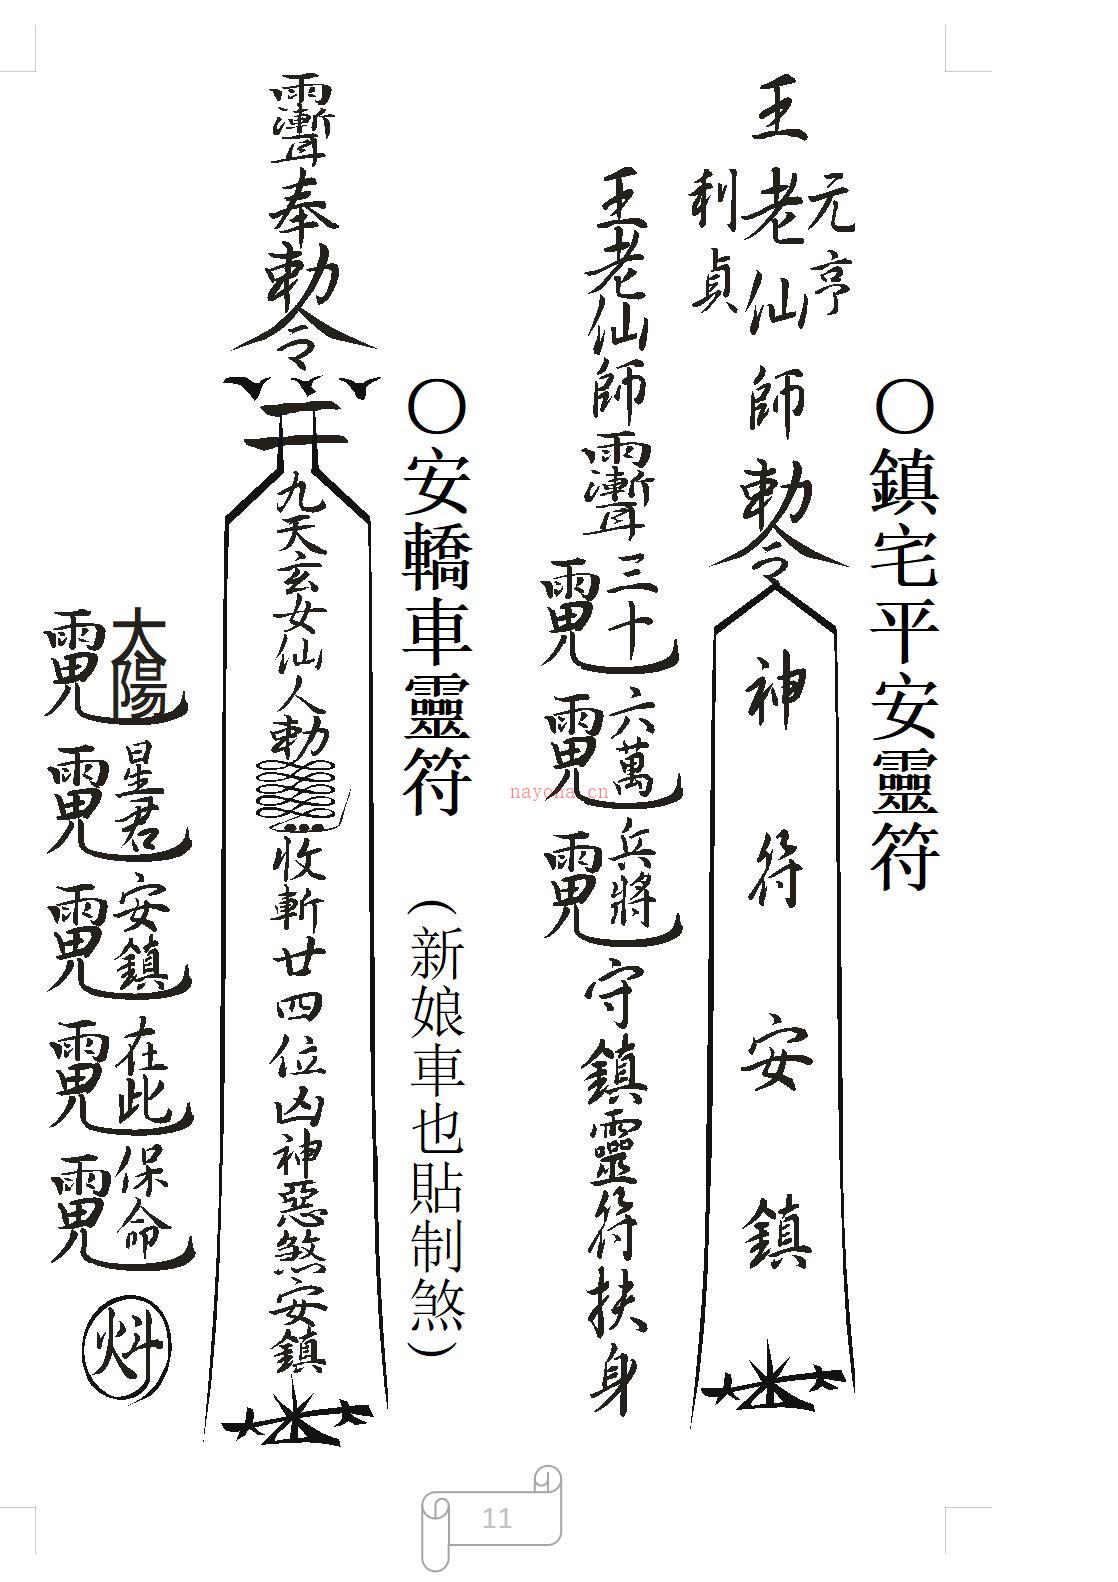 〇鎮宅平安靈符
王老仙師勅令
元亨
利貞
神符安鎮
王老仙師
三十
六萬
兵將
守鎮靈符扶身
〇安轎車靈符
(新娘車也貼制煞)
奉勅令
九天玄女仙人勅
收斬廿四位凶神惡煞安鎮
太陽
星君
安鎮
在此
保命
nayona.cn
11